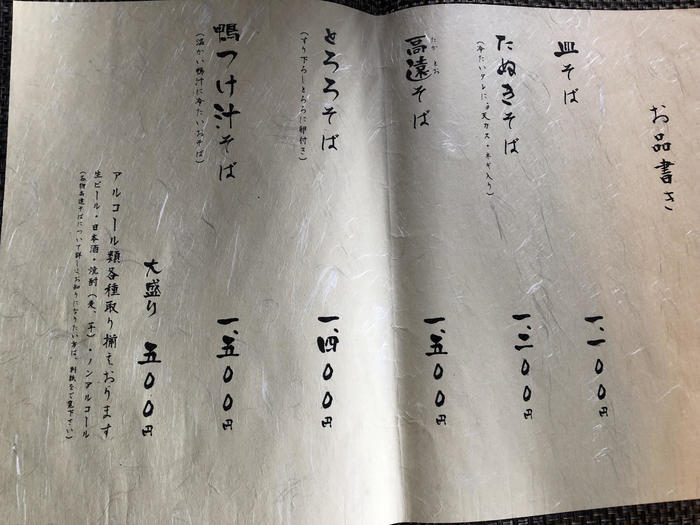 お品書き
皿そば 一、一〇〇円
たぬきそば 一、三〇〇円
(冷たいタレに天カス・ネギ入り)
高遠そば 一、五〇〇円
たかとお
とろろそば 一、四〇〇円
(すり下ろしとろろに卵付き)
鴨つけ汁そば 一、五〇〇円
(温かい鴨汁に冷たいおそば)
大盛り 五〇〇円
アルコール類各種取り揃えおります
生ビール・日本酒・焼酎(麦、芋)・ノンアルコール
(名物高遠そばについて詳しくお知りになりたい方は、別紙をご覧下さい)